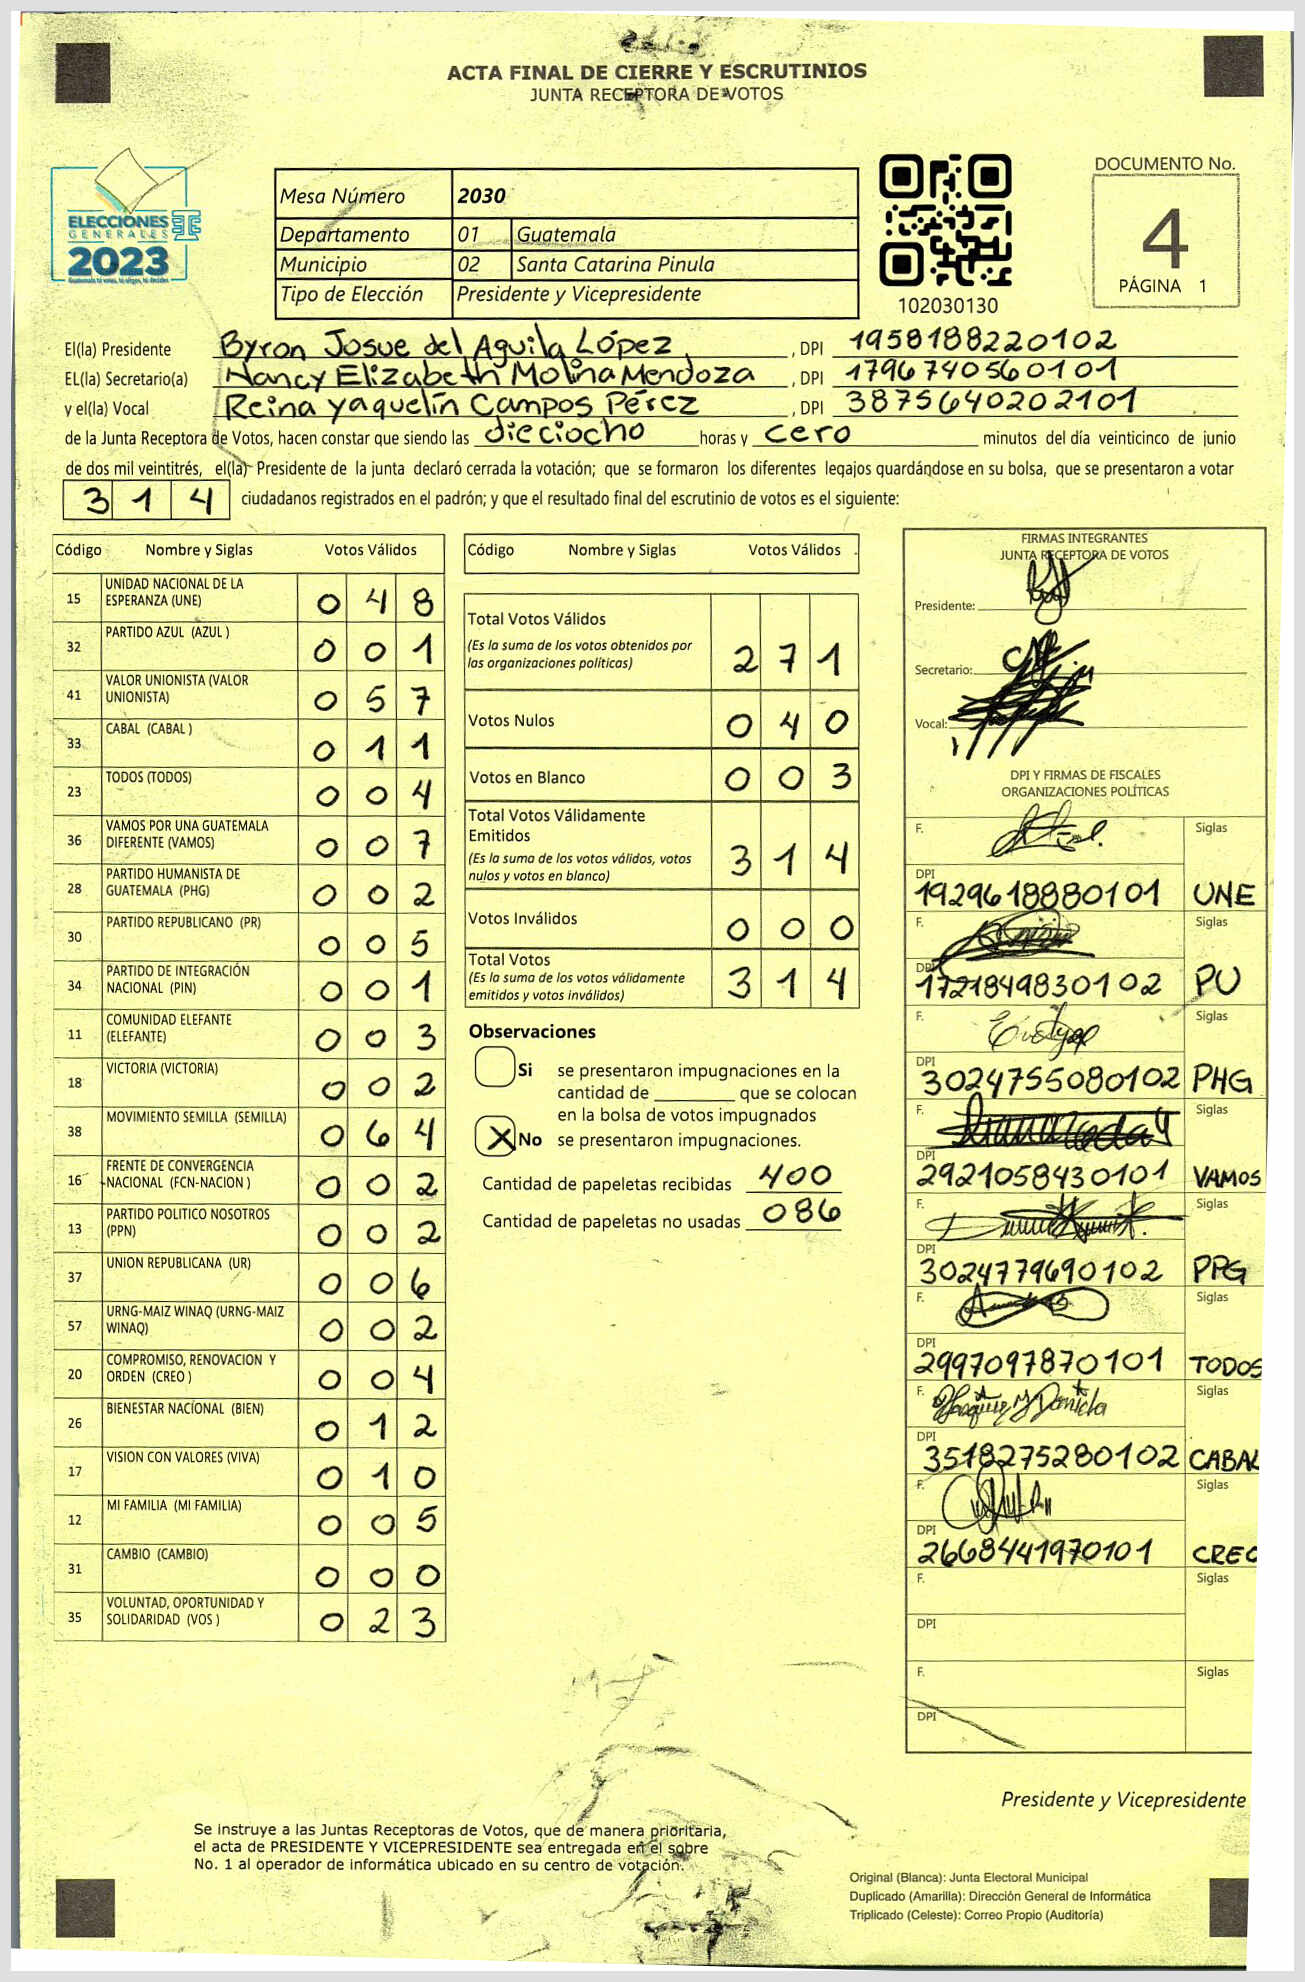 ACTA FINAL DE CIERRE Y ESCRUTINIOS
JUNTA RECEPTORA DE VOTOS
ELECCIONES
GENERALES
2023
Mesa Número 2030
Departamento 01 Guatemala
Municipio 02 Santa Catarina Pinula
Tipo de Elección Presidente y Vicepresidente
102030130
DOCUMENTO No.
4
PÁGINA 1
El(la) Presidente Byron Josue del Aguila López, DPI 1958188220102
EL(la) Secretario(a) Nancy Elizabeth Molina Mendoza, DPI 1796740560101
y el(la) Vocal Reina Yaquelín Campos Pérez, DPI 3875640202101
de la Junta Receptora de Votos, hacen constar que siendo las dieciocho horas y cero minutos del día veinticinco de junio
de dos mil veintitrés, el(la) Presidente de la junta declaró cerrada la votación; que se formaron los diferentes legajos guardándose en su bolsa, que se presentaron a votar
314 ciudadanos registrados en el padrón; y que el resultado final del escrutinio de votos es el siguiente:
Código Nombre y Siglas Votos Válidos
15 UNIDAD NACIONAL DE LA ESPERANZA (UNE) 0 4 8
32 PARTIDO AZUL (AZUL ) 0 0 1
41 VALOR UNIONISTA (VALOR UNIONISTA) 0 5 7
33 CABAL (CABAL ) 0 1 1
23 TODOS (TODOS) 0 0 4
36 VAMOS POR UNA GUATEMALA DIFERENTE (VAMOS) 0 0 7
28 PARTIDO HUMANISTA DE GUATEMALA (PHG) 0 0 2
30 PARTIDO REPUBLICANO (PR) 0 0 5
34 PARTIDO DE INTEGRACIÓN NACIONAL (PIN) 0 0 1
11 COMUNIDAD ELEFANTE (ELEFANTE) 0 0 3
18 VICTORIA (VICTORIA) 0 0 2
38 MOVIMIENTO SEMILLA (SEMILLA) 0 6 4
16 FRENTE DE CONVERGENCIA NACIONAL (FCN-NACION ) 0 0 2
13 PARTIDO POLITICO NOSOTROS (PPN) 0 0 2
37 UNION REPUBLICANA (UR) 0 0 6
57 URNG-MAIZ WINAQ (URNG-MAIZ WINAQ) 0 0 2
20 COMPROMISO, RENOVACION Y ORDEN (CREO ) 0 0 4
26 BIENESTAR NACIONAL (BIEN) 0 1 2
17 VISION CON VALORES (VIVA) 0 1 0
12 MI FAMILIA (MI FAMILIA) 0 0 5
31 CAMBIO (CAMBIO) 0 0 0
35 VOLUNTAD, OPORTUNIDAD Y SOLIDARIDAD (VOS ) 0 2 3
Código Nombre y Siglas Votos Válidos
Total Votos Válidos 2 7 1
(Es la suma de los votos obtenidos por
las organizaciones políticas)
Votos Nulos 0 4 0
Votos en Blanco 0 0 3
Total Votos Válidamente
Emitidos 3 1 4
(Es la suma de los votos válidos, votos
nulos y votos en blanco)
Votos Inválidos 0 0 0
Total Votos 3 1 4
(Es la suma de los votos válidamente
emitidos y votos inválidos)
Observaciones
Si se presentaron impugnaciones en la
cantidad de ________ que se colocan
en la bolsa de votos impugnados
X No se presentaron impugnaciones.
Cantidad de papeletas recibidas 400
Cantidad de papeletas no usadas 086
FIRMAS INTEGRANTES
JUNTA RECEPTORA DE VOTOS
Presidente:
Secretario:
Vocal:
DPI Y FIRMAS DE FISCALES
ORGANIZACIONES POLÍTICAS
F. Siglas
DPI
1929618880101 UNE
F. Siglas
DPI
1721849830102 PU
F. Siglas
DPI
3024755080102 PHG
F. Siglas
DPI
2921058430101 VAMOS
F. Siglas
DPI
3024779690102 PPG
F. Siglas
DPI
2997097870101 TODOS
F. Siglas
DPI
3518275280102 CABAL
F. Siglas
DPI
2668441970101 CREO
F. Siglas
DPI
F. Siglas
DPI
Presidente y Vicepresidente
Se instruye a las Juntas Receptoras de Votos, que de manera prioritaria,
el acta de PRESIDENTE Y VICEPRESIDENTE sea entregada en el sobre
No. 1 al operador de informática ubicado en su centro de votación.
Original (Blanca): Junta Electoral Municipal
Duplicado (Amarilla): Dirección General de Informática
Triplicado (Celeste): Correo Propio (Auditoría)